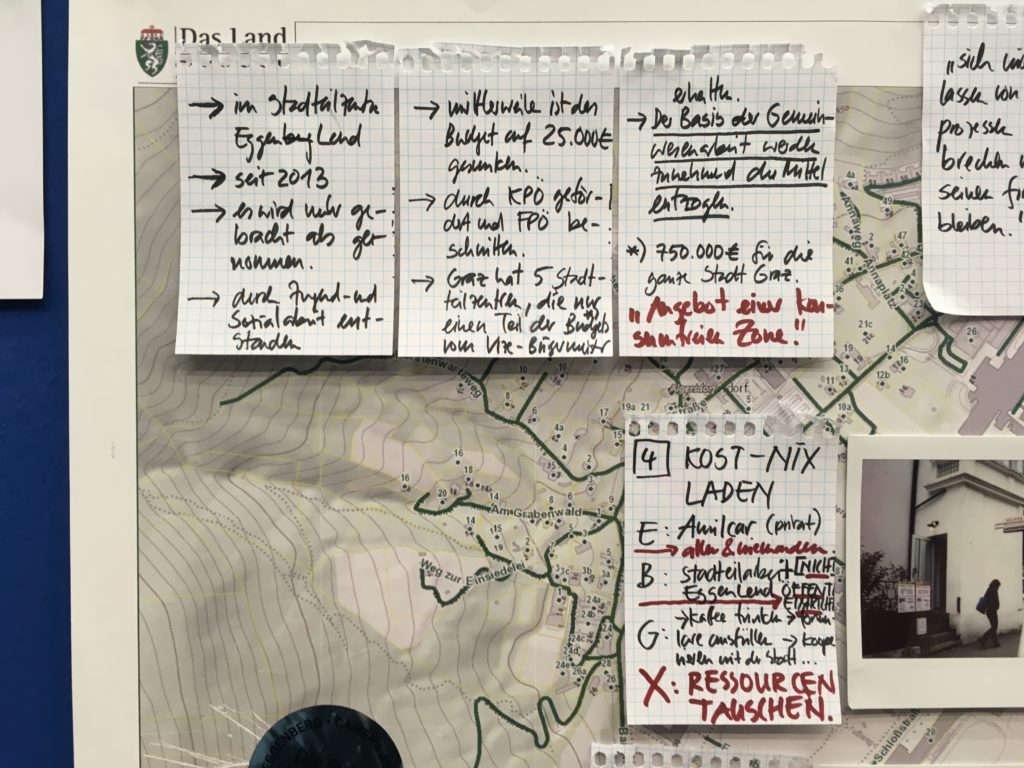 Das Land
→ im Stadtteilzentr
EggenbergLand
→ seit 2013
→ es wird mehr ge-
bracht als ge-
nommen.
→ durch Jugend- und
Sozialarbeit ent-
standen
→ mittlerweile ist das
Budget auf 25.000€
gesunken.
→ durch KPÖ geför-
dert und FPÖ be-
schnitten.
→ Graz hat 5 Stadt-
teilzentren, die nur
einen Teil des Budgets
vom Vize-Bürgermeister
erhalten.
→ Der Basis der Gemein-
wesenarbeit werden
zunehmend die Mittel
entzogen.
*) 750.000€ für die
ganze Stadt Graz.
"Angebot einer kon-
sumfreien Zone."
"sich nic
lassen von
prozesse
brechen
seinen fr
bleiben."
4 KOST-NIX
LADEN
E: Amilcar (privat)
→ allen & niemanden.
B: Stadtteilarbeit NICHT
EggenLand ÖFFENT
→ Kaffee trinken →
G: lare ausfüllen → koope
rieren mit der Stadt...
X: RESSOURCEN
TAUSCHEN.
Annaweg
Annaplatz
Algersdorf
straße
Am Grabenwald
Weg zur Einsiedelei
Schloßstraße